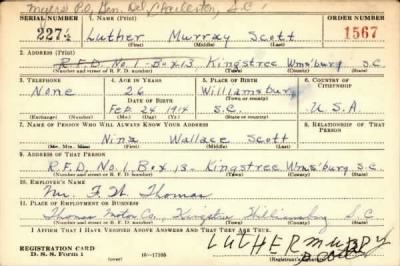 Myers P.O. Gen. Del. Charleston, S.C.
SERIAL NUMBER 1. NAME (Print) ORDER NUMBER
227½ Luther Murray Scott 1567
(First) (Middle) (Last)
2. ADDRESS (Print)
R.F.D. No. 1 - Box 13. Kingstree Wms'burg S.C.
(Number and street or R. F. D. number) (Town) (County) (State)
3. TELEPHONE 4. AGE IN YEARS 5. PLACE OF BIRTH 6. COUNTRY OF CITIZENSHIP
None 26 Williamsburg
DATE OF BIRTH (Town or county)
Feb 24 1914 S.C. U.S.A.
(Exchange) (Number) (Mo.) (Day) (Yr.) (State or country)
7. NAME OF PERSON WHO WILL ALWAYS KNOW YOUR ADDRESS 8. RELATIONSHIP OF THAT PERSON
Nina Wallace Scott
(Mr., Mrs., Miss) (First) (Middle) (Last)
9. ADDRESS OF THAT PERSON
R.F.D. No. 1 Box 13. Kingstree Wms'burg S.C.
(Number and street or R. F. D. number) (Town) (County) (State)
10. EMPLOYER'S NAME
Mr. Thomas
11. PLACE OF EMPLOYMENT OR BUSINESS
Thomas Motor Co., Kingstree Williamsburg S.C.
(Number and street or R. F. D. number) (Town) (County) (State)
I AFFIRM THAT I HAVE VERIFIED ABOVE ANSWERS AND THAT THEY ARE TRUE.
REGISTRATION CARD LUTHER MURRY
D. S. S. Form 1 16-17105 SCOTT